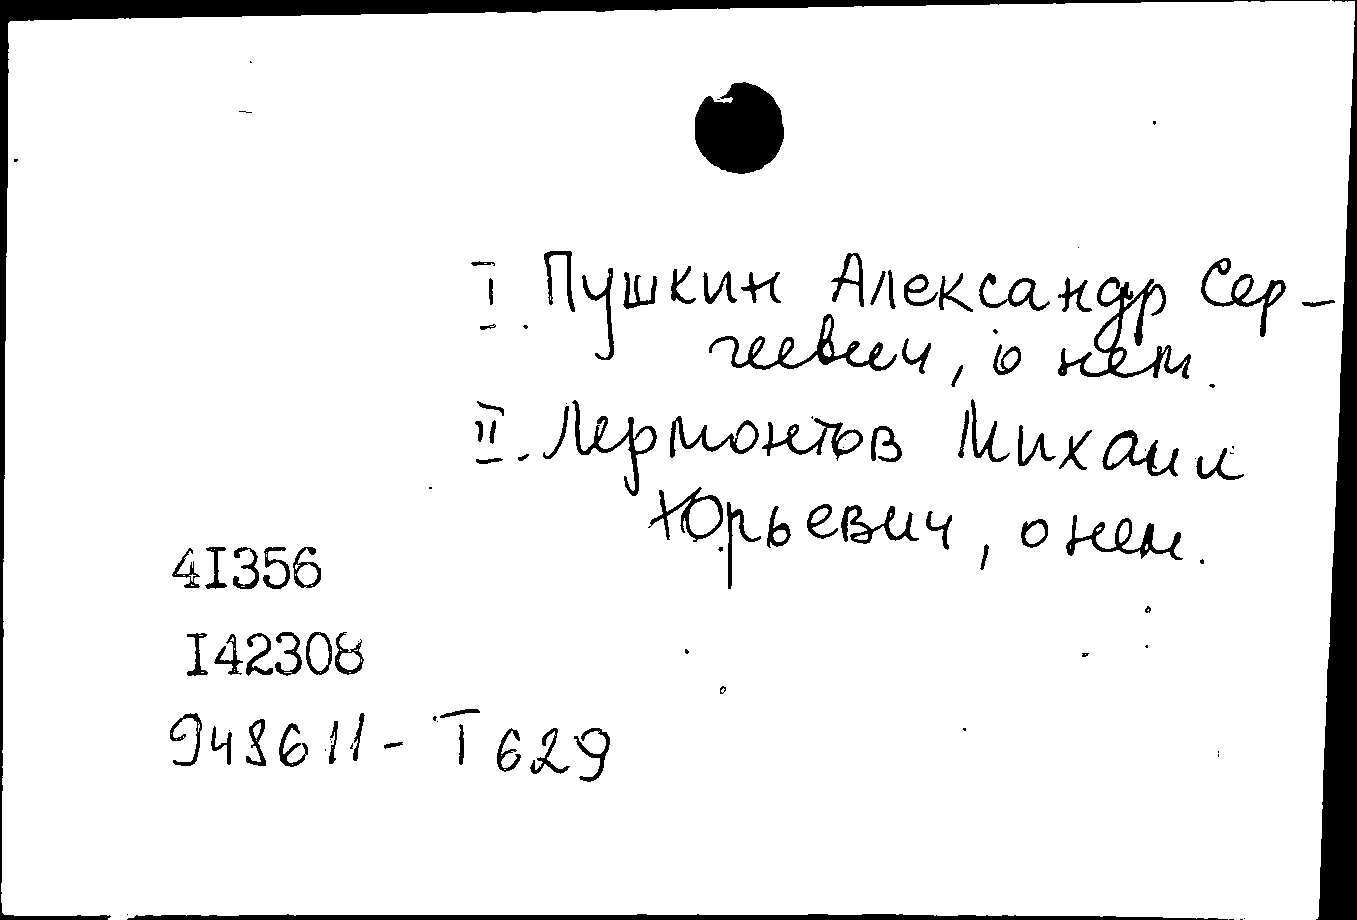 I. Пушкин Александр Сер-
геевич, о нем.
II. Лермонтов Михаил
Юрьевич, о нем.
4I356
I42308
948611-Т629